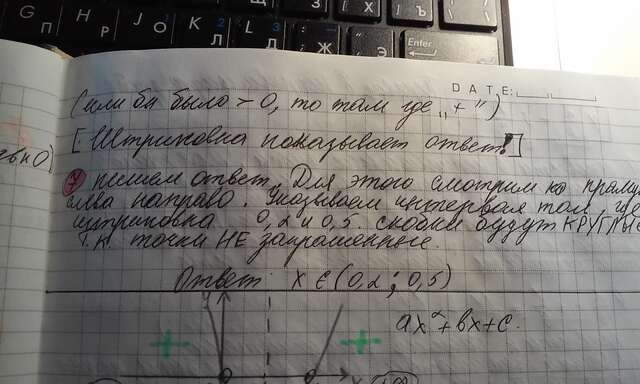 G П H Р J О K Л L Д Ж Э Х Ъ
Enter
DATE:
(или бы было > 0, то там где „+")
[Штриховка показывает ответ!]
7 пишем ответ. Для этого смотрим на прямую
слева направо. Указываем интервал там, где
штриховка 0,2 и 0,5. скобки будут КРУГЛЫЕ
т.к точки НЕ закрашенные.
Ответ: x ∈ (0,2; 0,5)
ax²+bx+c.
+ +